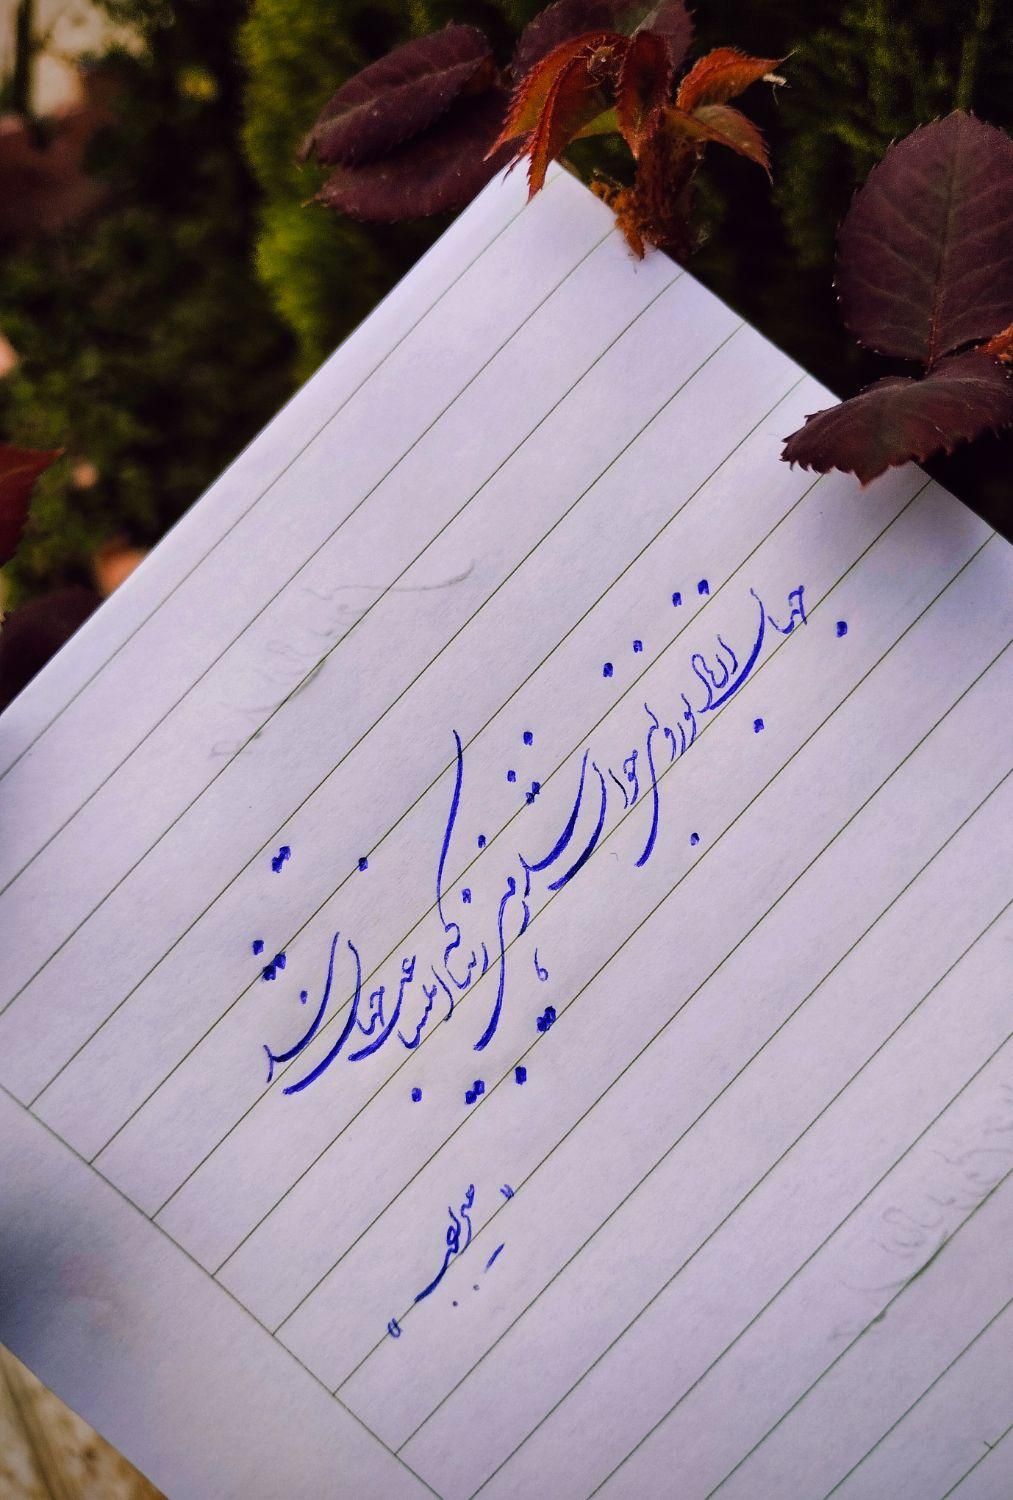 جهان از باد نوروزی جوان شد زهی زیبا که این ساعت جهان شد